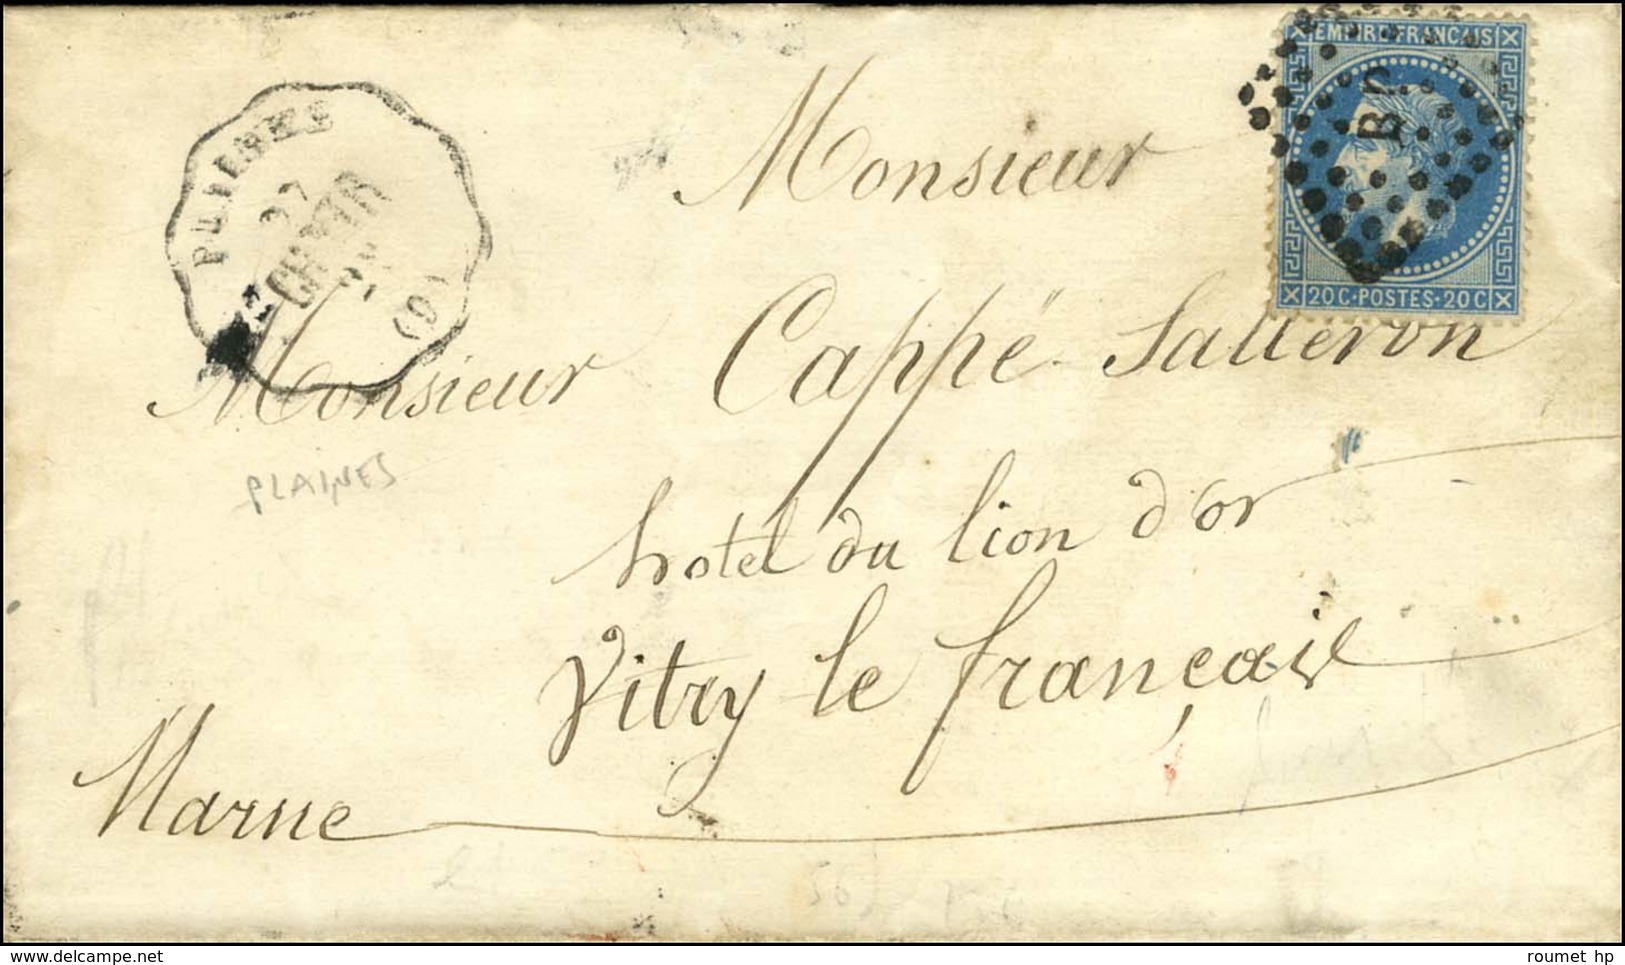 EMPIRE FRANÇAIS
B C
20 C · POSTES · 20 C
PLAINES
27
(9)
Monsieur
Monsieur Cappé-Salleron
PLAINES
hotel du lion d'or
Vitry le français
Marne
delcampe.net
roumet hp